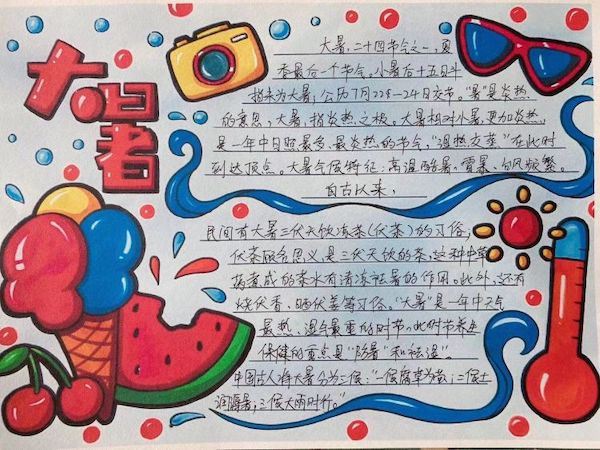 大暑
大暑,二十四节气之一,夏
季最后一个节气,小暑后十五日斗
指未为大暑,公历7月22-24日交节。"暑"是炎热
的意思,大暑,指炎热之极。大暑相对小暑更加炎热,
是一年中日照最多、最炎热的节气,"湿热交蒸"在此时
到达顶点。大暑气候特征:高温酷暑、雷暴、台风频繁。
自古以来,
民间有大暑三伏天饮凉茶(伏茶)的习俗,
伏茶顾名思义是三伏天饮的茶,这种中草
药煮成的茶水有清凉祛暑的作用。此外,还有
烧伏香、晒伏姜等习俗。"大暑"是一年中天气
最热、湿气最重的时节。此时节养生
保健的重点是"防暑"和祛湿"
中国古人将大暑分为三候:"一候腐草为萤;二候土
润溽暑;三候大雨时行。"